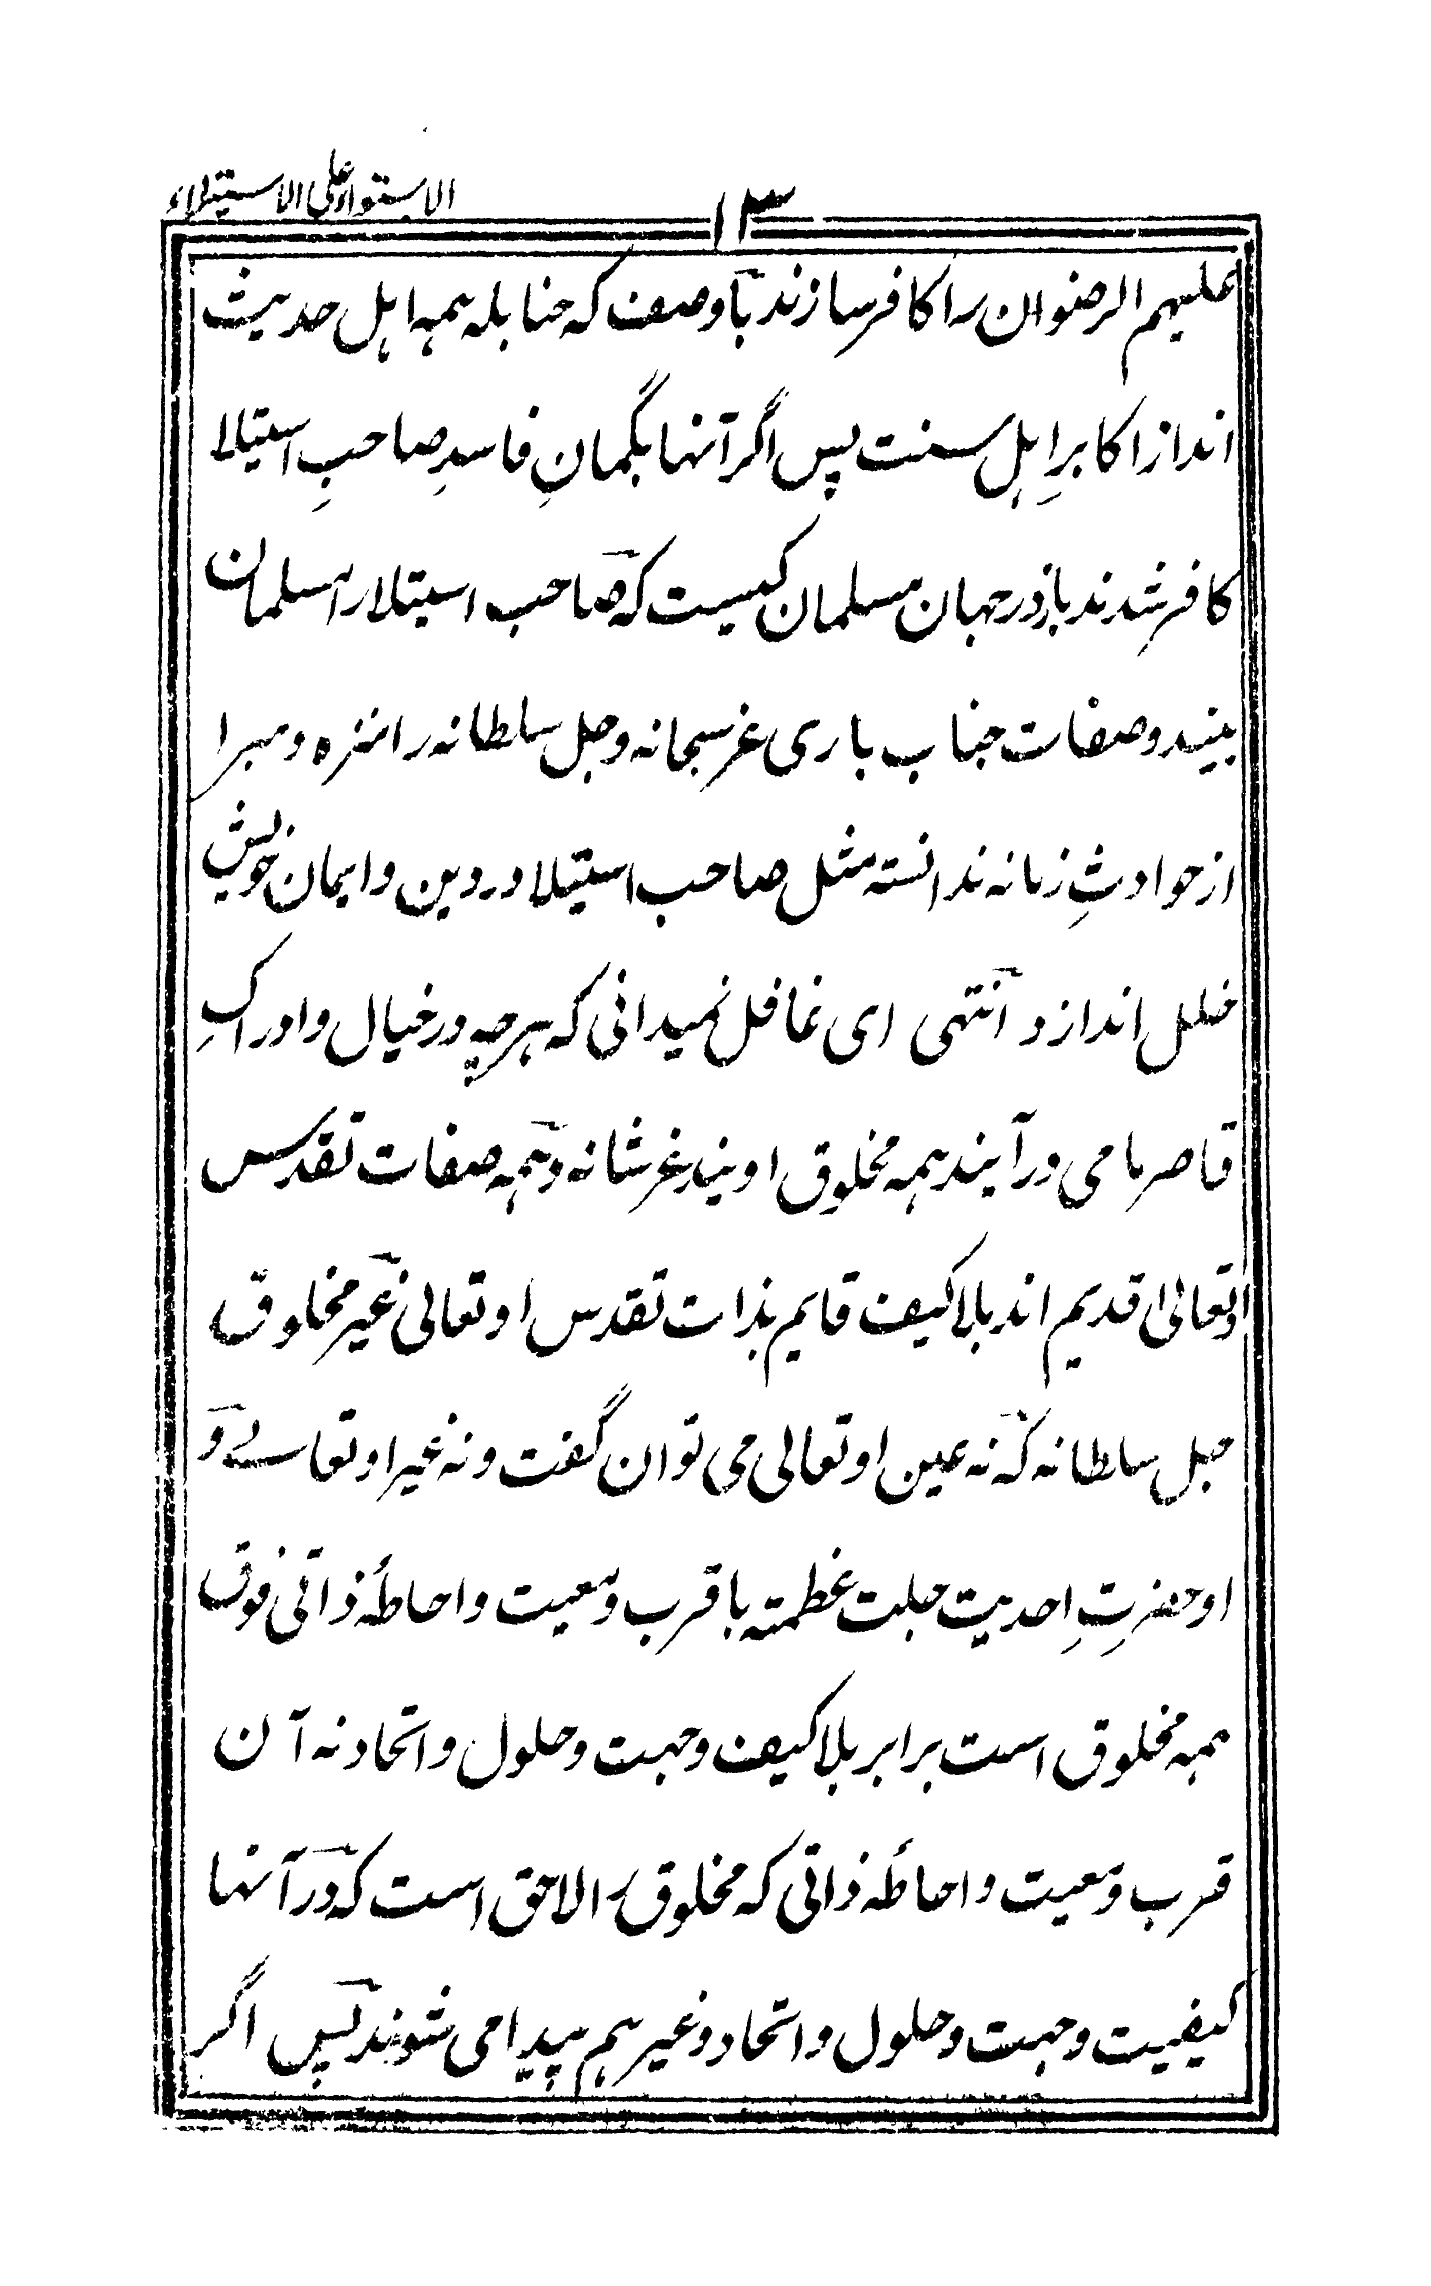 الاستواء علی الاستیلاء
۱۳
علیهم الرضوان را کافر سازند باوصف که حنابله همه اهل حدیث
اند از اکابرِ اهل سنت پس اگر آنها بگمانِ فاسدِ صاحبِ استیلا
کافر شدند باز در جهان مسلمان کیست که صاحب استیلا را مسلمان
بیند و صفات جناب باری عز سبحانه و جل سلطانه را منزه و مبرا
از حوادثِ زمانه ندانسته مثل صاحب استیلا در دین و ایمان خویش
خلل اندازد انتهی ای غافل نمیدانی که هرچه در خیال و ادراکِ
قاصر ما می درآیند همه مخلوق اویند عز شانه و همه صفات تقدس
او تعالی قدیم اند بلا کیف قایم بذات تقدس او تعالی غیر مخلوق
جل سلطانه که نه عین او تعالی می توان گفت و نه غیر او تعالے و
او حضرتِ احدیتِ جلت عظمته با قرب و معیت و احاطهٔ ذاتی فوق
همه مخلوق است برابر بلا کیف و جهت و حلول و اتحاد نه آن
قرب و معیت و احاطهٔ ذاتی که مخلوق را لاحق است که در آنها
کیفیت و جهت و حلول و اتحاد و غیرهم پیدا می شوند پس اگر